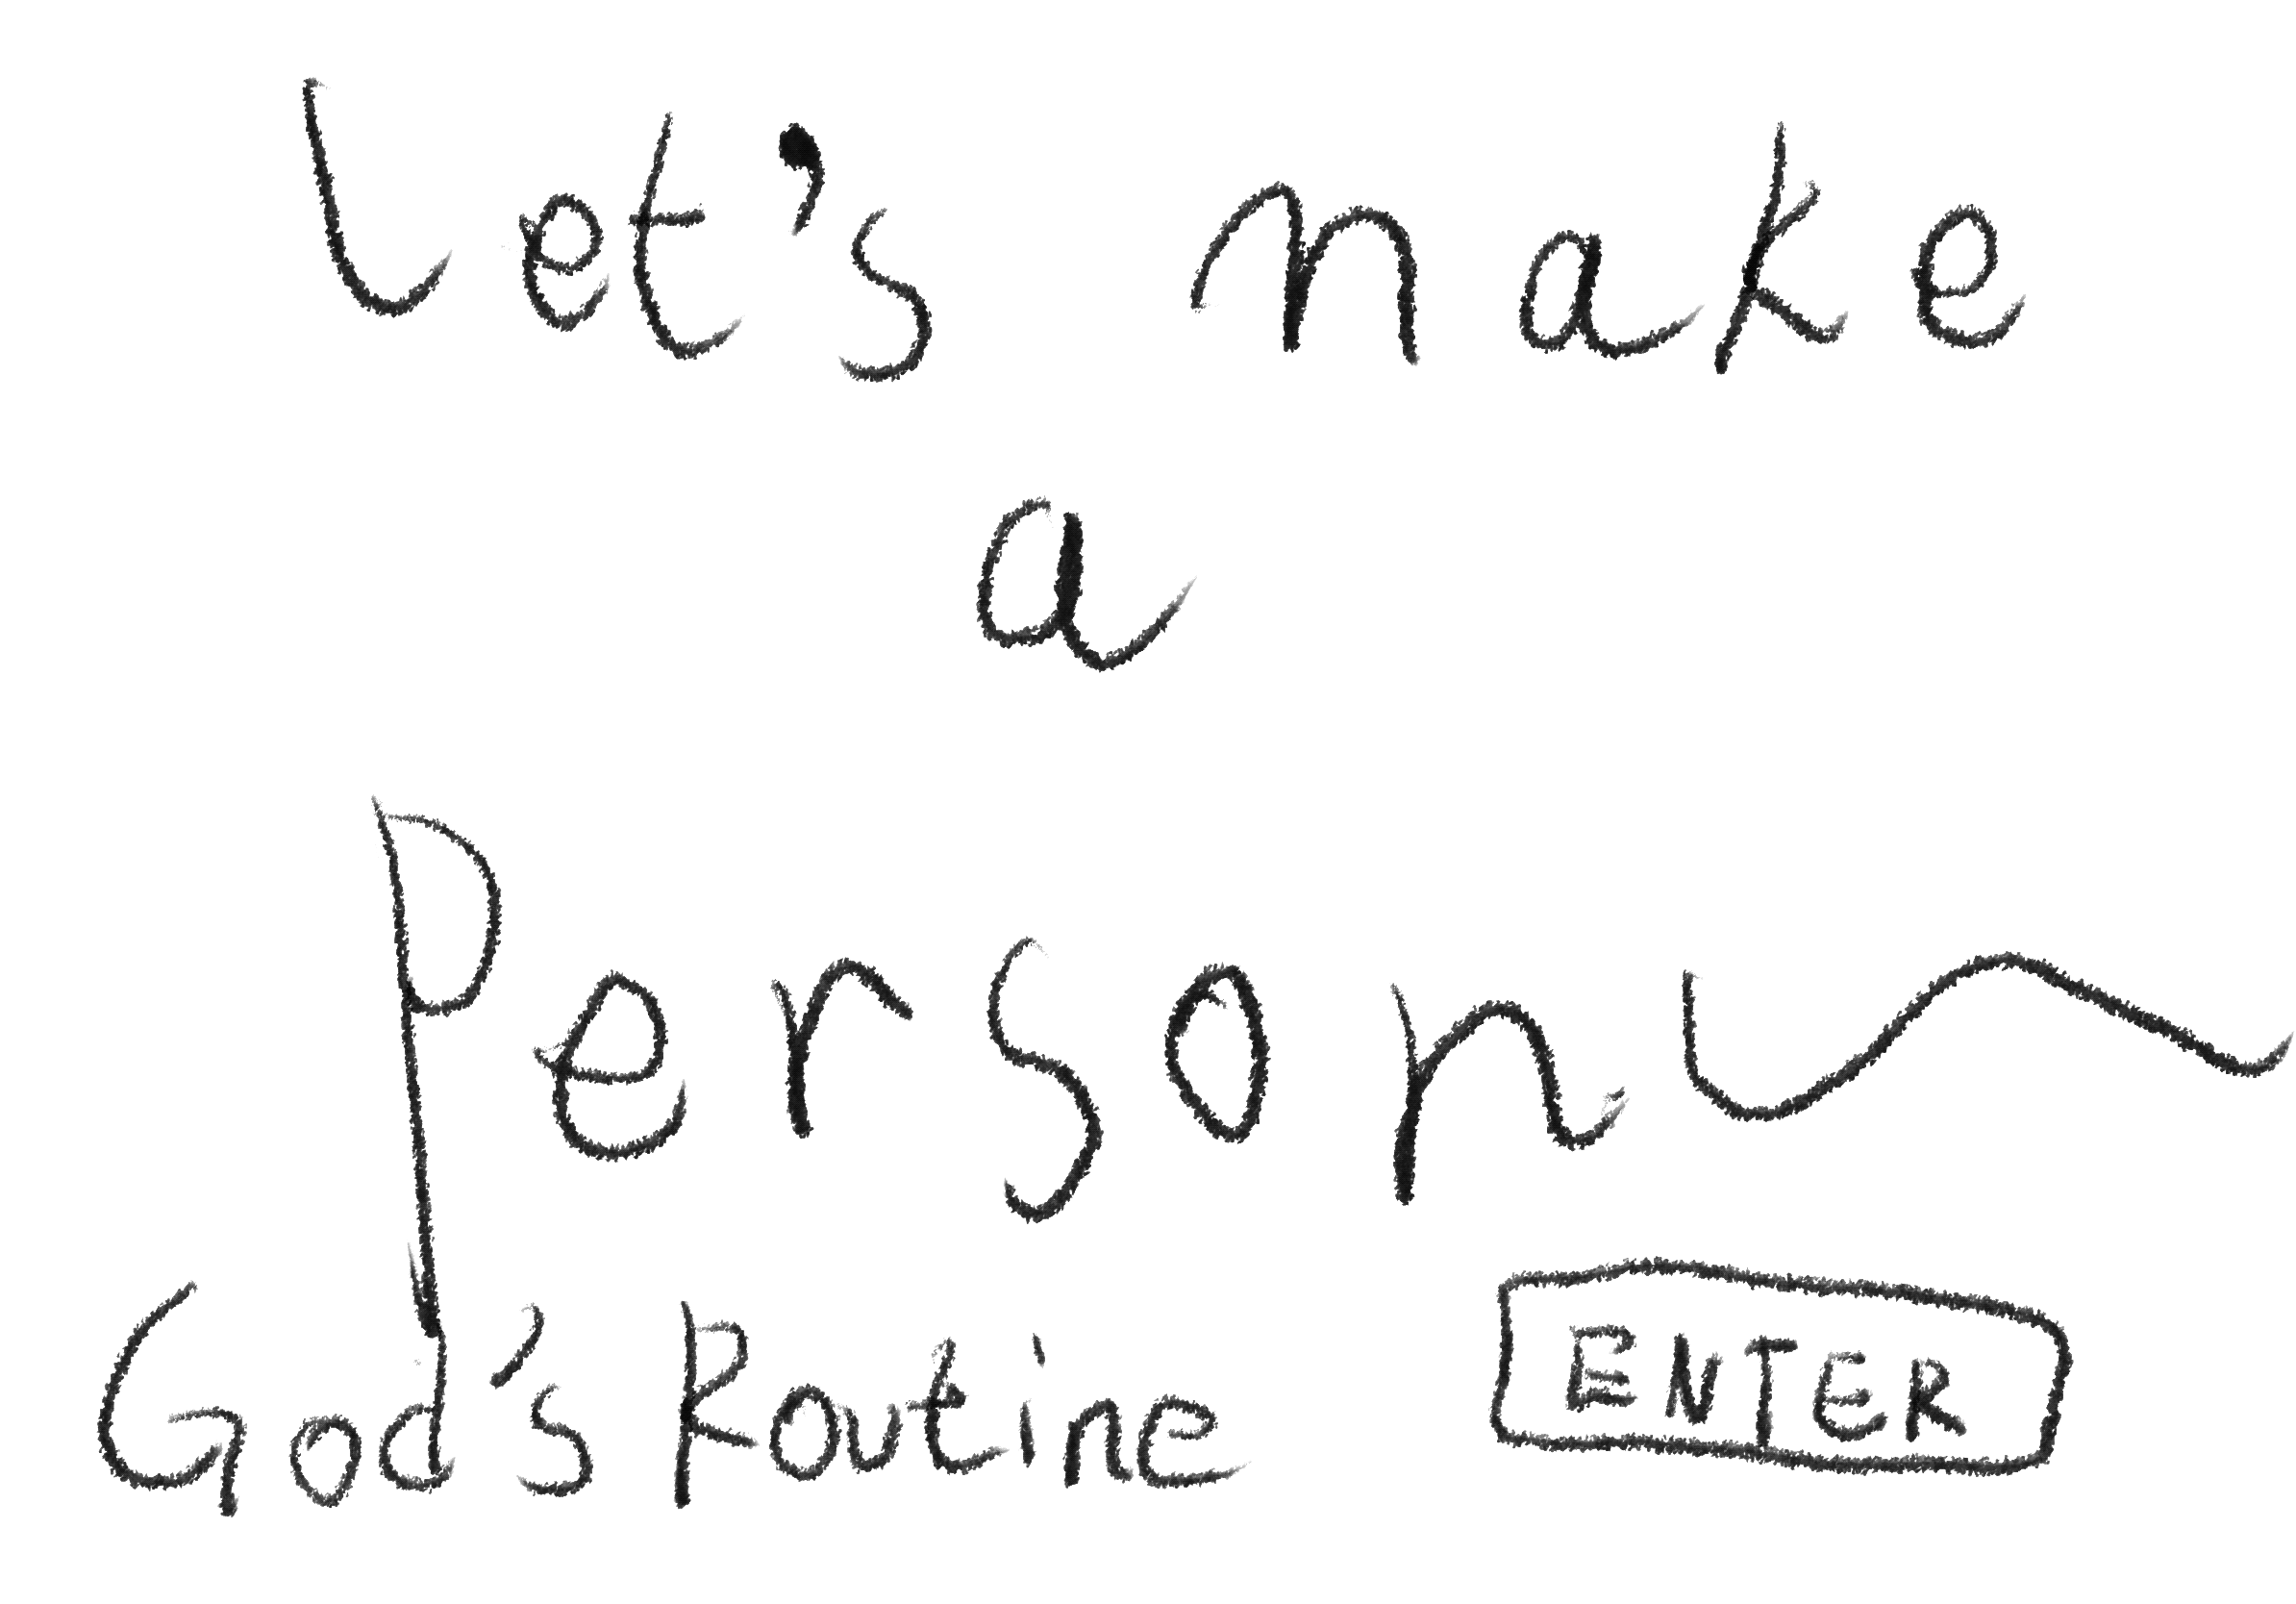 let's make
a
Person~
God's Routine
ENTER